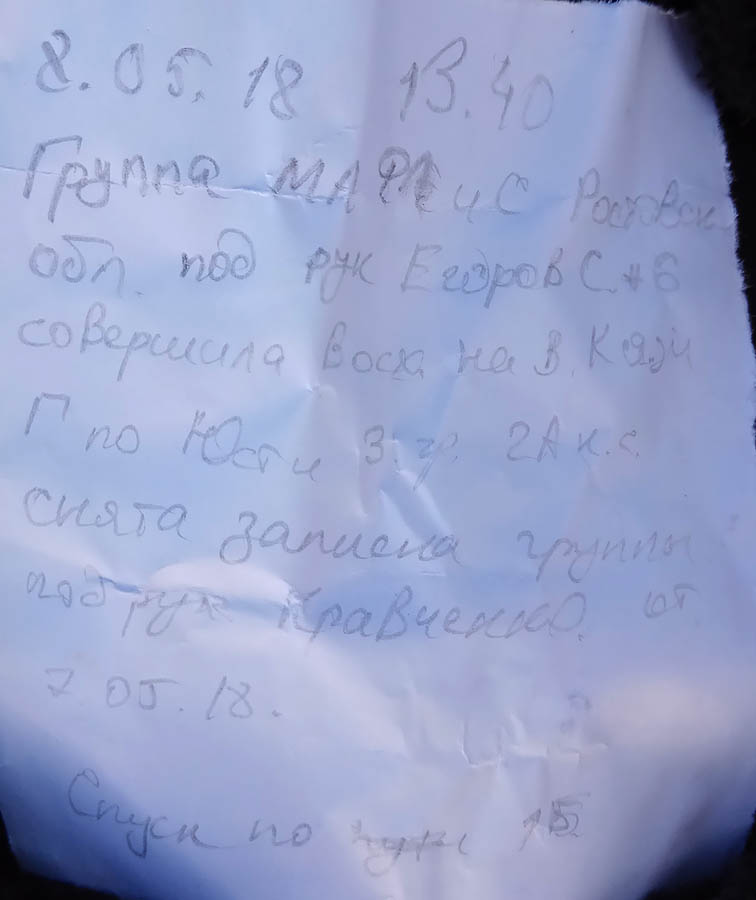 8.05.18 13.40
Группа МАФ и С Ростовск
обл. под рук Егоров С. + 6
совершила Восх на В. Кази
Г по Ю сти 3. гр. 2А к.с.
снята записка группы
под рук Кравченко. от
7 05.18.
Спуск по 1Б